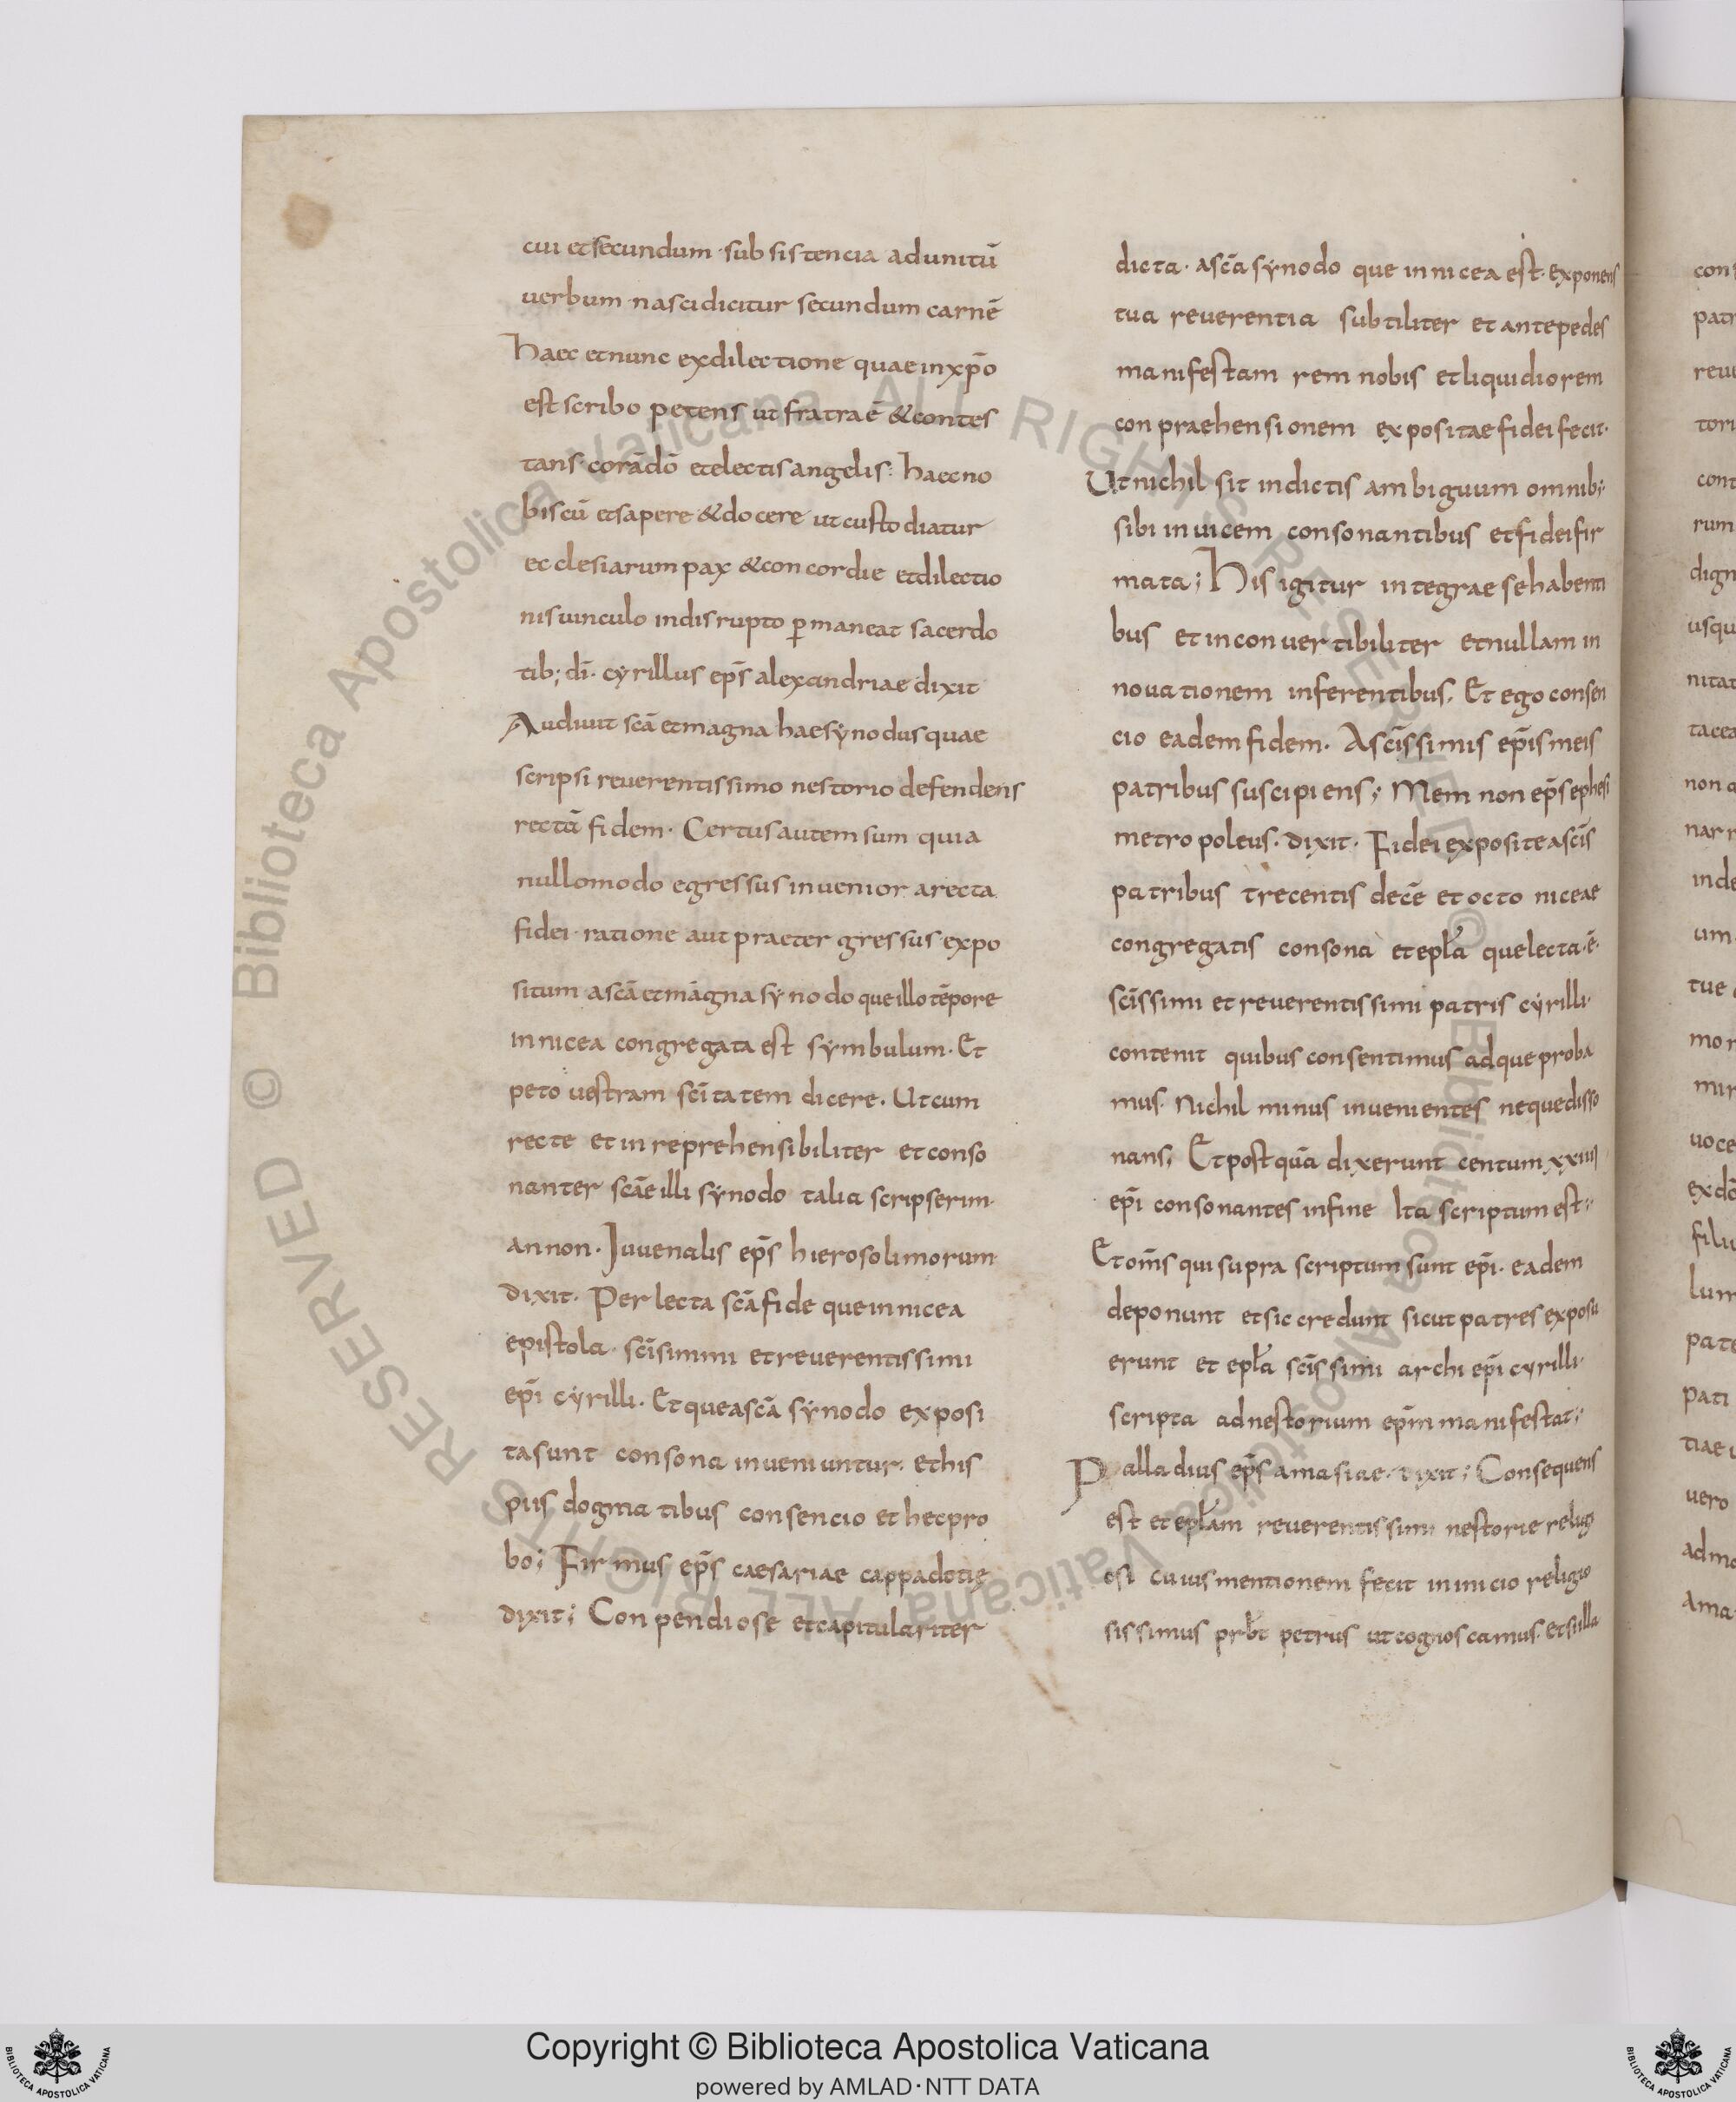 cui et secundum · subsistencia adunitū
uerbum · nasci dicitur secundum carnē
Haec et nunc ex dilectione quae in xp̄o
est scribo petens ut fratrae &contes
tans corā dō et electis angelis · haec no
biscū et sapere & docere ut custodiatur
ecclesiarum pax & concordie et dilectio
nis uinculo indisrupto ꝑmaneat sacerdo
tib; dī · cyrillus ep̄s alexandriae dixit
Audiuit scā et magna hae synodus quae
scripsi reuerentissimo nestorio defendens
rectā fidem · Certus autem sum quia
nullomodo egressus inuenior a recta
fidei · ratione aut praetergressus expo
situm a scā et magna synodo que illo tēpore
in nicea congregata est symbulum · Et
peto uestram scītatem dicere · Ut cum
recte et inreprehensibiliter et conso
nanter scāe illi synodo talia scripserim
an non · Iuuenalis ep̄s hierosolimorum
dixit · Per lecta scā fide que in nicea
epistola · scīsimmi et reuerentissimi
ep̄i cyrilli · Et que a scā synodo exposi
ta sunt consona inueniuntur · et his
piis dogmatibus consencio et hec pro
bo; Firmus ep̄s caesariae cappadotię
dixit; Conpendiose et capitulariter
dicta · a scā synodo que in nicea est · exponens
tua reuerentia subtiliter et ante pedes
manifestam rem nobis et liquidiorem
conpraehensionem expositae fidei fecit ·
Ut nichil sit in dictis ambiguum omnib;
sibi inuicem consonantibus et fidei fir
mata; His igitur integrae se habenti
bus et inconuertibiliter et nullam in
nouationem inferentibus, Et ego consen
cio eadem fidem · A scīssimis ep̄is meis
patribus suscipiens; Memnon ep̄s ephesi
metropoleus · dixit · Fidei exposite a scīs
patribus trecentis decē et octo niceae
congregatis consona et epła que lecta · ē ·
scīssimi et reuerentissimi patris cyrilli ·
contenit quibus consentimus adque proba
mus · Nichil minus inuenientes neque disso
nans, Et postquā dixerunt centum xxiiij
ep̄i consonantes in fine Ita scriptum est ;
Et om̄s qui supra scriptum sunt ep̄i · eadem
deponunt et sic credunt sicut patres exposu
erunt et epła scīssimi archiep̄i cyrilli ·
scripta ad nestorium ep̄m manifestat ;
Palladius ep̄s amasiae · dixit; Consequens
est et epłam reuerentissimi nestorie relig
osi cuius mentionem fecit in inicio religio
sissimus prb̄t petrus ut cognoscamus · et si illa
Copyright © Biblioteca Apostolica Vaticana
powered by AMLAD·NTT DATA